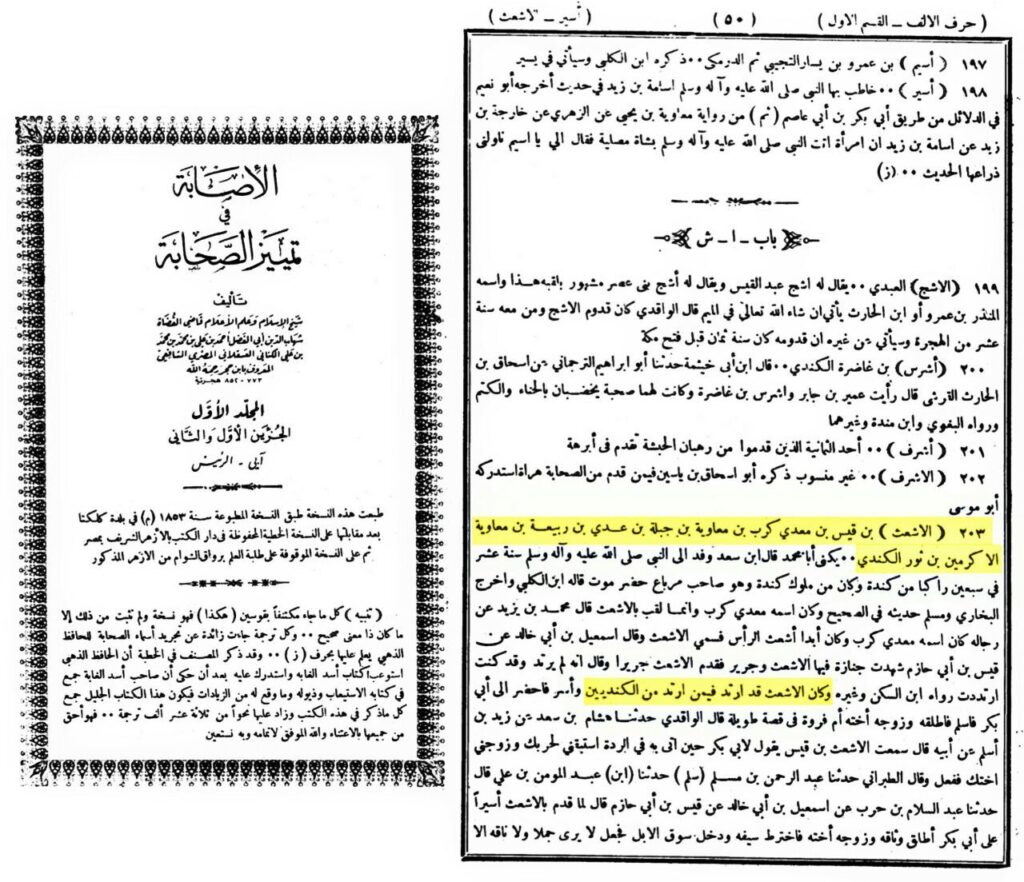 ( حرف الالف ــ القسم الاول )
( ٥٠ )
( أسير ــ الاشعث )
١٩٧ ( أسيم ) بن عمرو بن يسار التجيبي ثم الدرمكى ٠٠ ذكره ابن الكلبى وسيأتي في يسير
١٩٨ ( أسير ) ٠٠ خاطب بها النبي صلى الله عليه وآله وسلم اسامة بن زيد في حديث أخرجه أبو نعيم
في الدلائل من طريق أبي بكر بن أبي عاصم ( نم ) من رواية معاوية بن يحيى عن الزهري عن خارجة بن
زيد عن اسامة بن زيد ان امرأة اتت النبي صلى الله عليه وآله وسلم بشاة مصلية فقال الي يا اسيم ناولنى
ذراعها الحديث ٠٠ (ز)
باب ــ ا ــ ش
١٩٩ (الاشج) العبدي ٠٠ يقال له اشج عبد القيس ويقال له أشج بنى عصر مشهور بلقبه هذا واسمه
المنذر بن عمرو أو ابن الحارث يأتي ان شاء الله تعالى في الميم قال الواقدي كان قدوم الاشج ومن معه سنة
عشر من الهجرة وسيأتي عن غيره ان قدومه كان سنة ثمان قبل فتح مكة
٢٠٠ ( أشرس ) بن غاضرة الكندي ٠٠ قال ابن أبى خيثمة حدثنا أبو ابراهيم الترجماني عن اسحاق بن
الحارث القرشى قال رأيت عمير بن جابر واشرس بن غاضرة وكانت لهما صحبة يخضبان بالحناء والكتم
ورواه البغوي وابن مندة وغيرهما
٢٠١ ( أشرف ) ٠٠ أحد الثمانية الذين قدموا من رهبان الحبشة تقدم فى أبرهة
٢٠٢ ( الاشرف ) ٠٠ غير منسوب ذكره أبو اسحاق بن ياسين فيمن قدم من الصحابة هراة استدركه
أبو موسى
٢٠٣ ( الاشعث ) بن قيس بن معدي كرب بن معاوية بن جبلة بن عدي بن ربيعة بن معاوية
الاكرمين بن ثور الكندي ٠٠ يكنى أبا محمد قال ابن سعد وفد الى النبى صلى الله عليه وآله وسلم سنة عشر
في سبعين راكبا من كندة وكان من ملوك كندة وهو صاحب مرباع حضر موت قاله ابن الكلبي واخرج
البخاري ومسلم حديثه في الصحيح وكان اسمه معدي كرب وانما لقب بالاشعث قال محمد بن يزيد عن
رجاله كان اسمه معدي كرب وكان أبدا أشعث الرأس فسمي الاشعث وقال اسمعيل بن أبي خالد عن
قيس بن أبي حازم شهدت جنازة فيها الاشعث وجرير فقدم الاشعث جريرا وقال انه لم يرتد وقد كنت
ارتددت رواه ابن السكن وغيره وكان الاشعث قد ارتد فيمن ارتد من الكنديين وأسر فاحضر الى أبي
بكر فاسلم فاطلقه وزوجه أخته أم فروة فى قصة طويلة قال الواقدي حدثنا هشام بن سعد عن زيد بن
أسلم عن أبيه قال سمعت الاشعث بن قيس يقول لابي بكر حين اتى به في الردة استبقني لحربك وزوجني
اختك ففعل وقال الطبراني حدثنا عبد الرحمن بن مسلم ( سلم ) حدثنا (ابن) عبد المومن بن علي قال
حدثنا عبد السلام بن حرب عن اسمعيل بن أبي خالد عن قيس بن أبي حازم قال لما قدم بالاشعث أسيراً
على أبي بكر أطلق وثاقه وزوجه أخته فاخترط سيفه ودخل سوق الابل فجعل لا يرى جملا ولا ناقه الا
الإصابة
في
تمييز الصحابة
تأليف
شيخ الإسلام وعلم الأعلام قاضي القضاة
شهاب الدين أبي الفضل أحمد بن علي بن محمد بن محمد
بن علي الكناني العسقلاني المصري الشافعي
المعروف بابن حجر رحمه الله
٧٧٣-٨٥٢ هجرية
المجلد الأول
الجزءين الأول والثاني
آبلى - الرئيس
طبعت هذه النسخة طبق النسخة المطبوعة سنة ١٨٥٣ (م) في بلدة كلكتا
بعد مقابلتها على النسخة الخطية المحفوظة في دار الكتب بالازهر الشريف بمصر
ثم على النسخة الموقوفة على طلبة العلم برواق الشوام من الازهر المذكور
( تنبيه ) كل ماجاء مكتنفاً بقوسين ( هكذا ) فهو نسخة ولم تثبت من ذلك إلا
ما كان ذا معنى صحيح ٠٠ وكل ترجمة جاءت زائدة عن تجريد أسماء الصحابة للحافظ
الذهبي يعلم عليها بحرف ( ز ) ٠٠ وقد ذكر المصنف في الخطبة أن الحافظ الذهبي
استوعب كتاب أسد الغابه واستدرك عليه بعد أن حكى أن صاحب أسد الغابة جمع
في كتابه الاستيعاب وذيوله وما وقع له من الزيادات فيكون هذا الكتاب الجليل جمع
كل ماذكر في هذه الكتب وزاد عليها نحواً من ثلاثة عشر ألف ترجمة ٠٠ فهو أحق
من جميعها بالاعتناء والله الموفق لاتمامه وبه نستعين